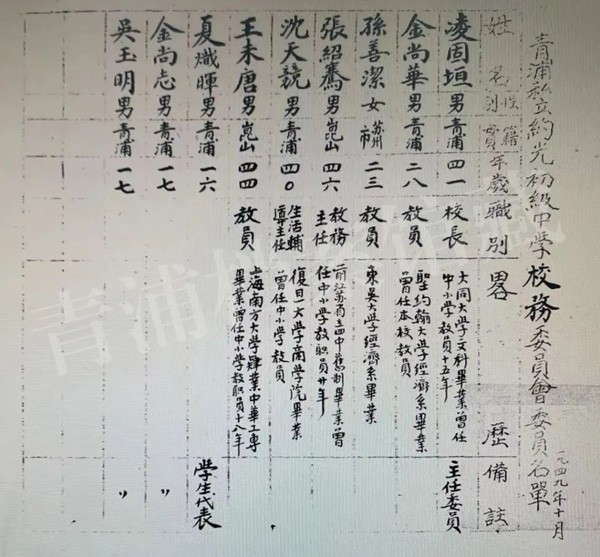 青浦私立約光初級中学校務委員會委員名單
一九四九年十月
姓名 性別 籍貫 年歲 職別 畧歷 備註
凌固垣 男 青浦 四一 校長 大同大學文科畢業曾任中小學教員十五年 主任委員
金尚華 男 青浦 二八 教員 聖約翰大學經濟系畢業曾任本校教員
孫善潔 女 蘇州市 二三 教員 東吳大學經濟系畢業
張紹騫 男 崑山 四六 教務主任 前江蘇省立四中舊制畢業曾任中小學教職員廿年
沈天競 男 青浦 四〇 生活輔導主任 復旦大學商學院畢業曾任中小學教員
王未唐 男 崑山 四四 教員 上海南方大學肄業中華工專畢業曾任中小學教職員十八年
夏熾暉 男 青浦 一六 學生代表
金尚志 男 青浦 一七 〃
吳玉明 男 青浦 一七 〃